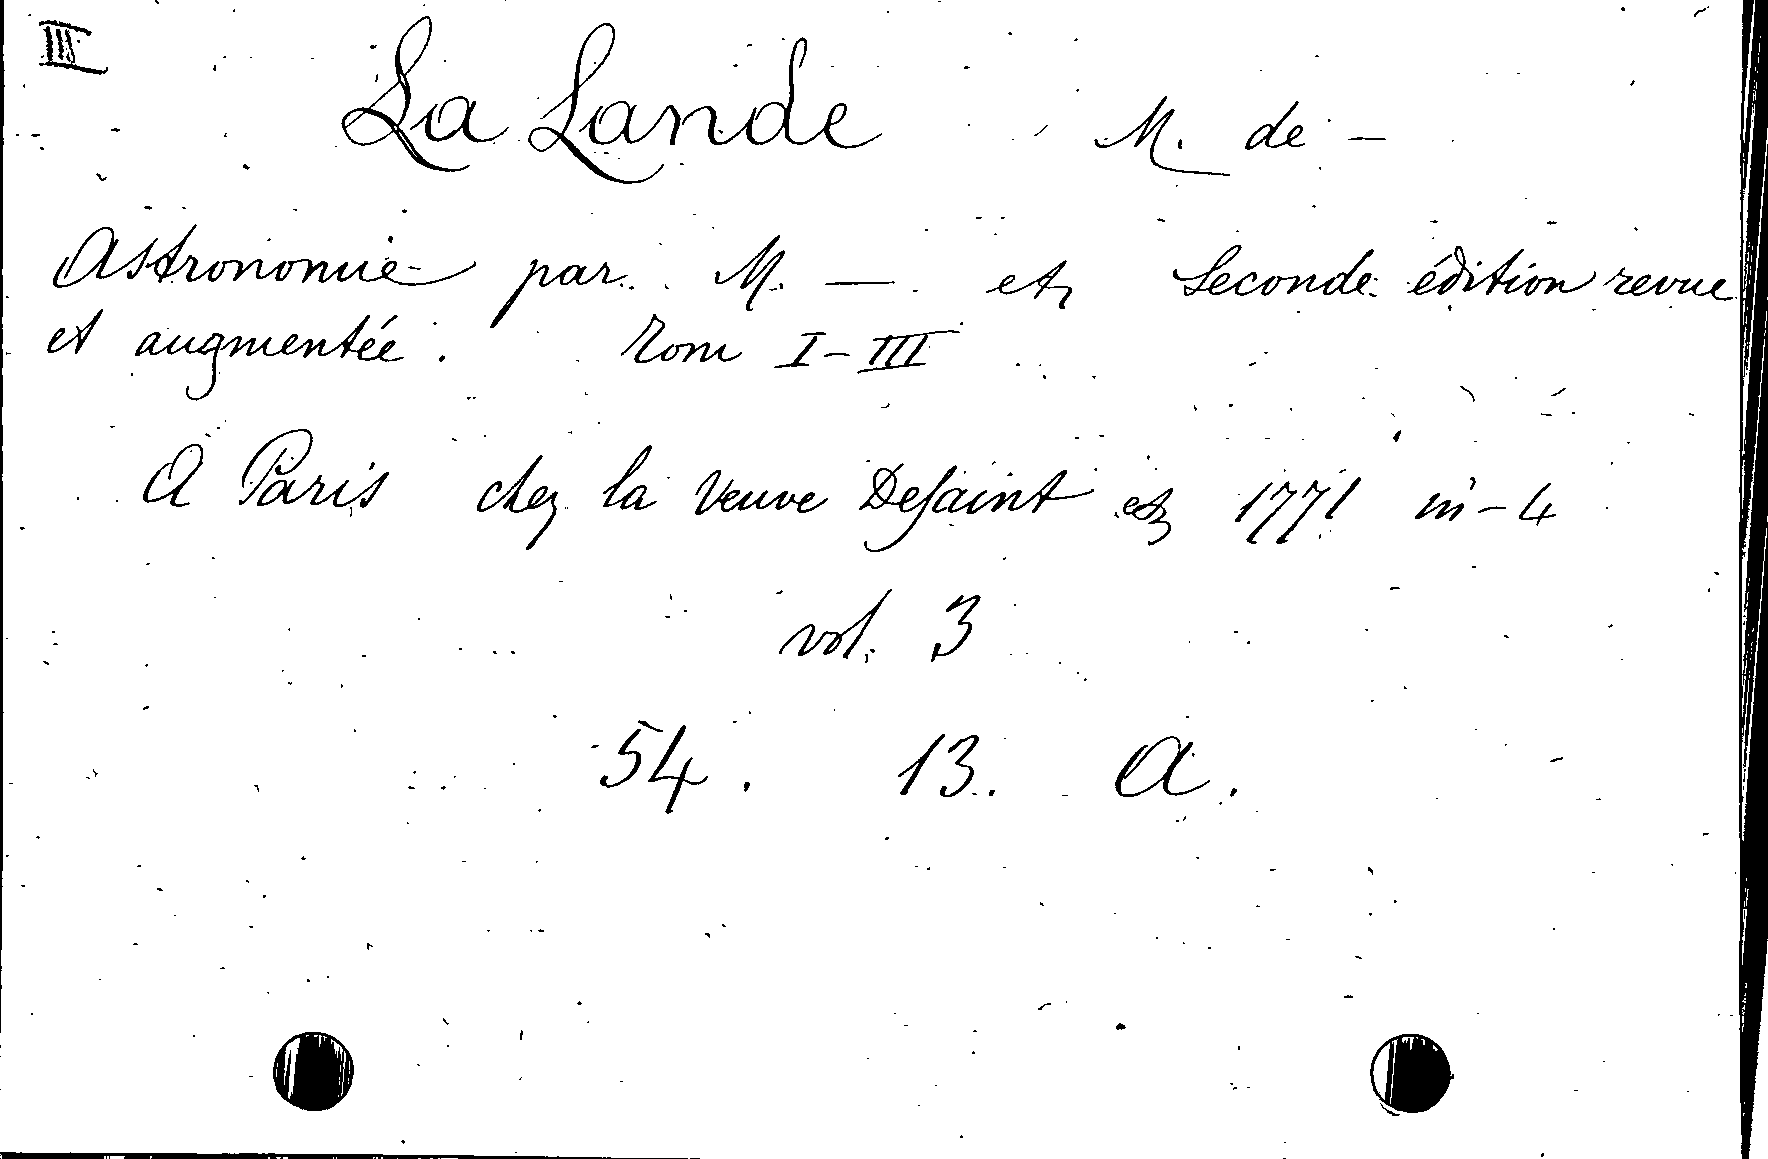 III
La Lande M. de —
Astronomie par M. — etz Seconde édition revue
et augmentée. Tom I–III
A Paris chez la Veuve Desaint etz 1771 in-4
vol. 3
54. 13. A.